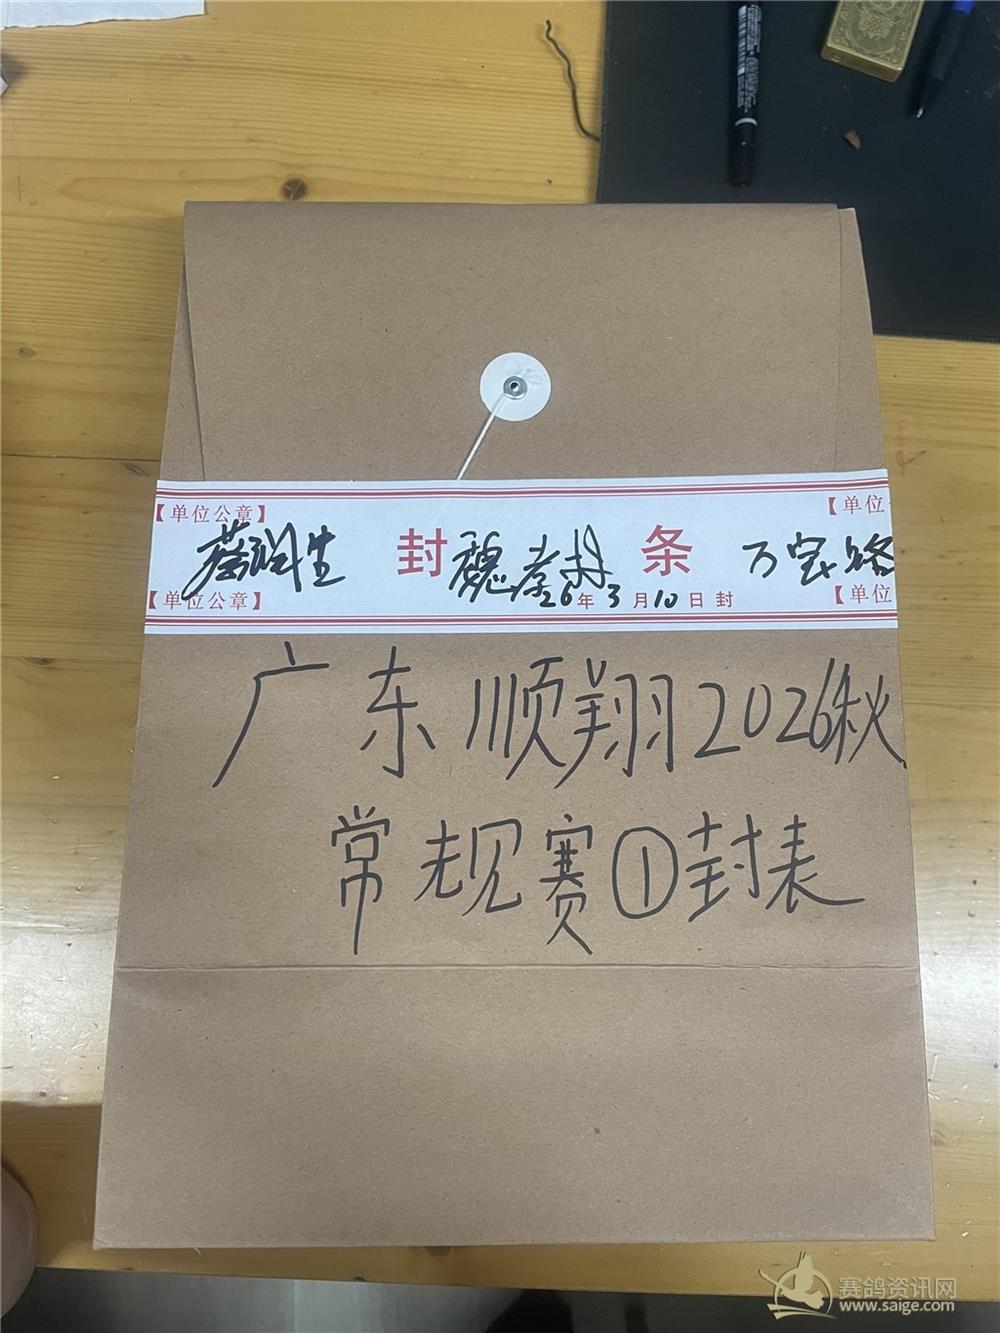 【单位公章】
【单位
封 条
【单位公章】
26年3月10日封
【单位
广东顺翔2026秋
常规赛①封表
赛鸽资讯网
www.saige.com